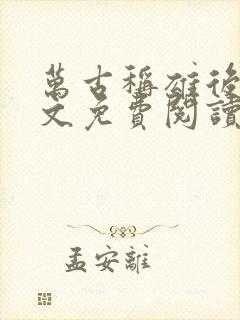 萬古稱雄後
文免費閱讀
孟安離